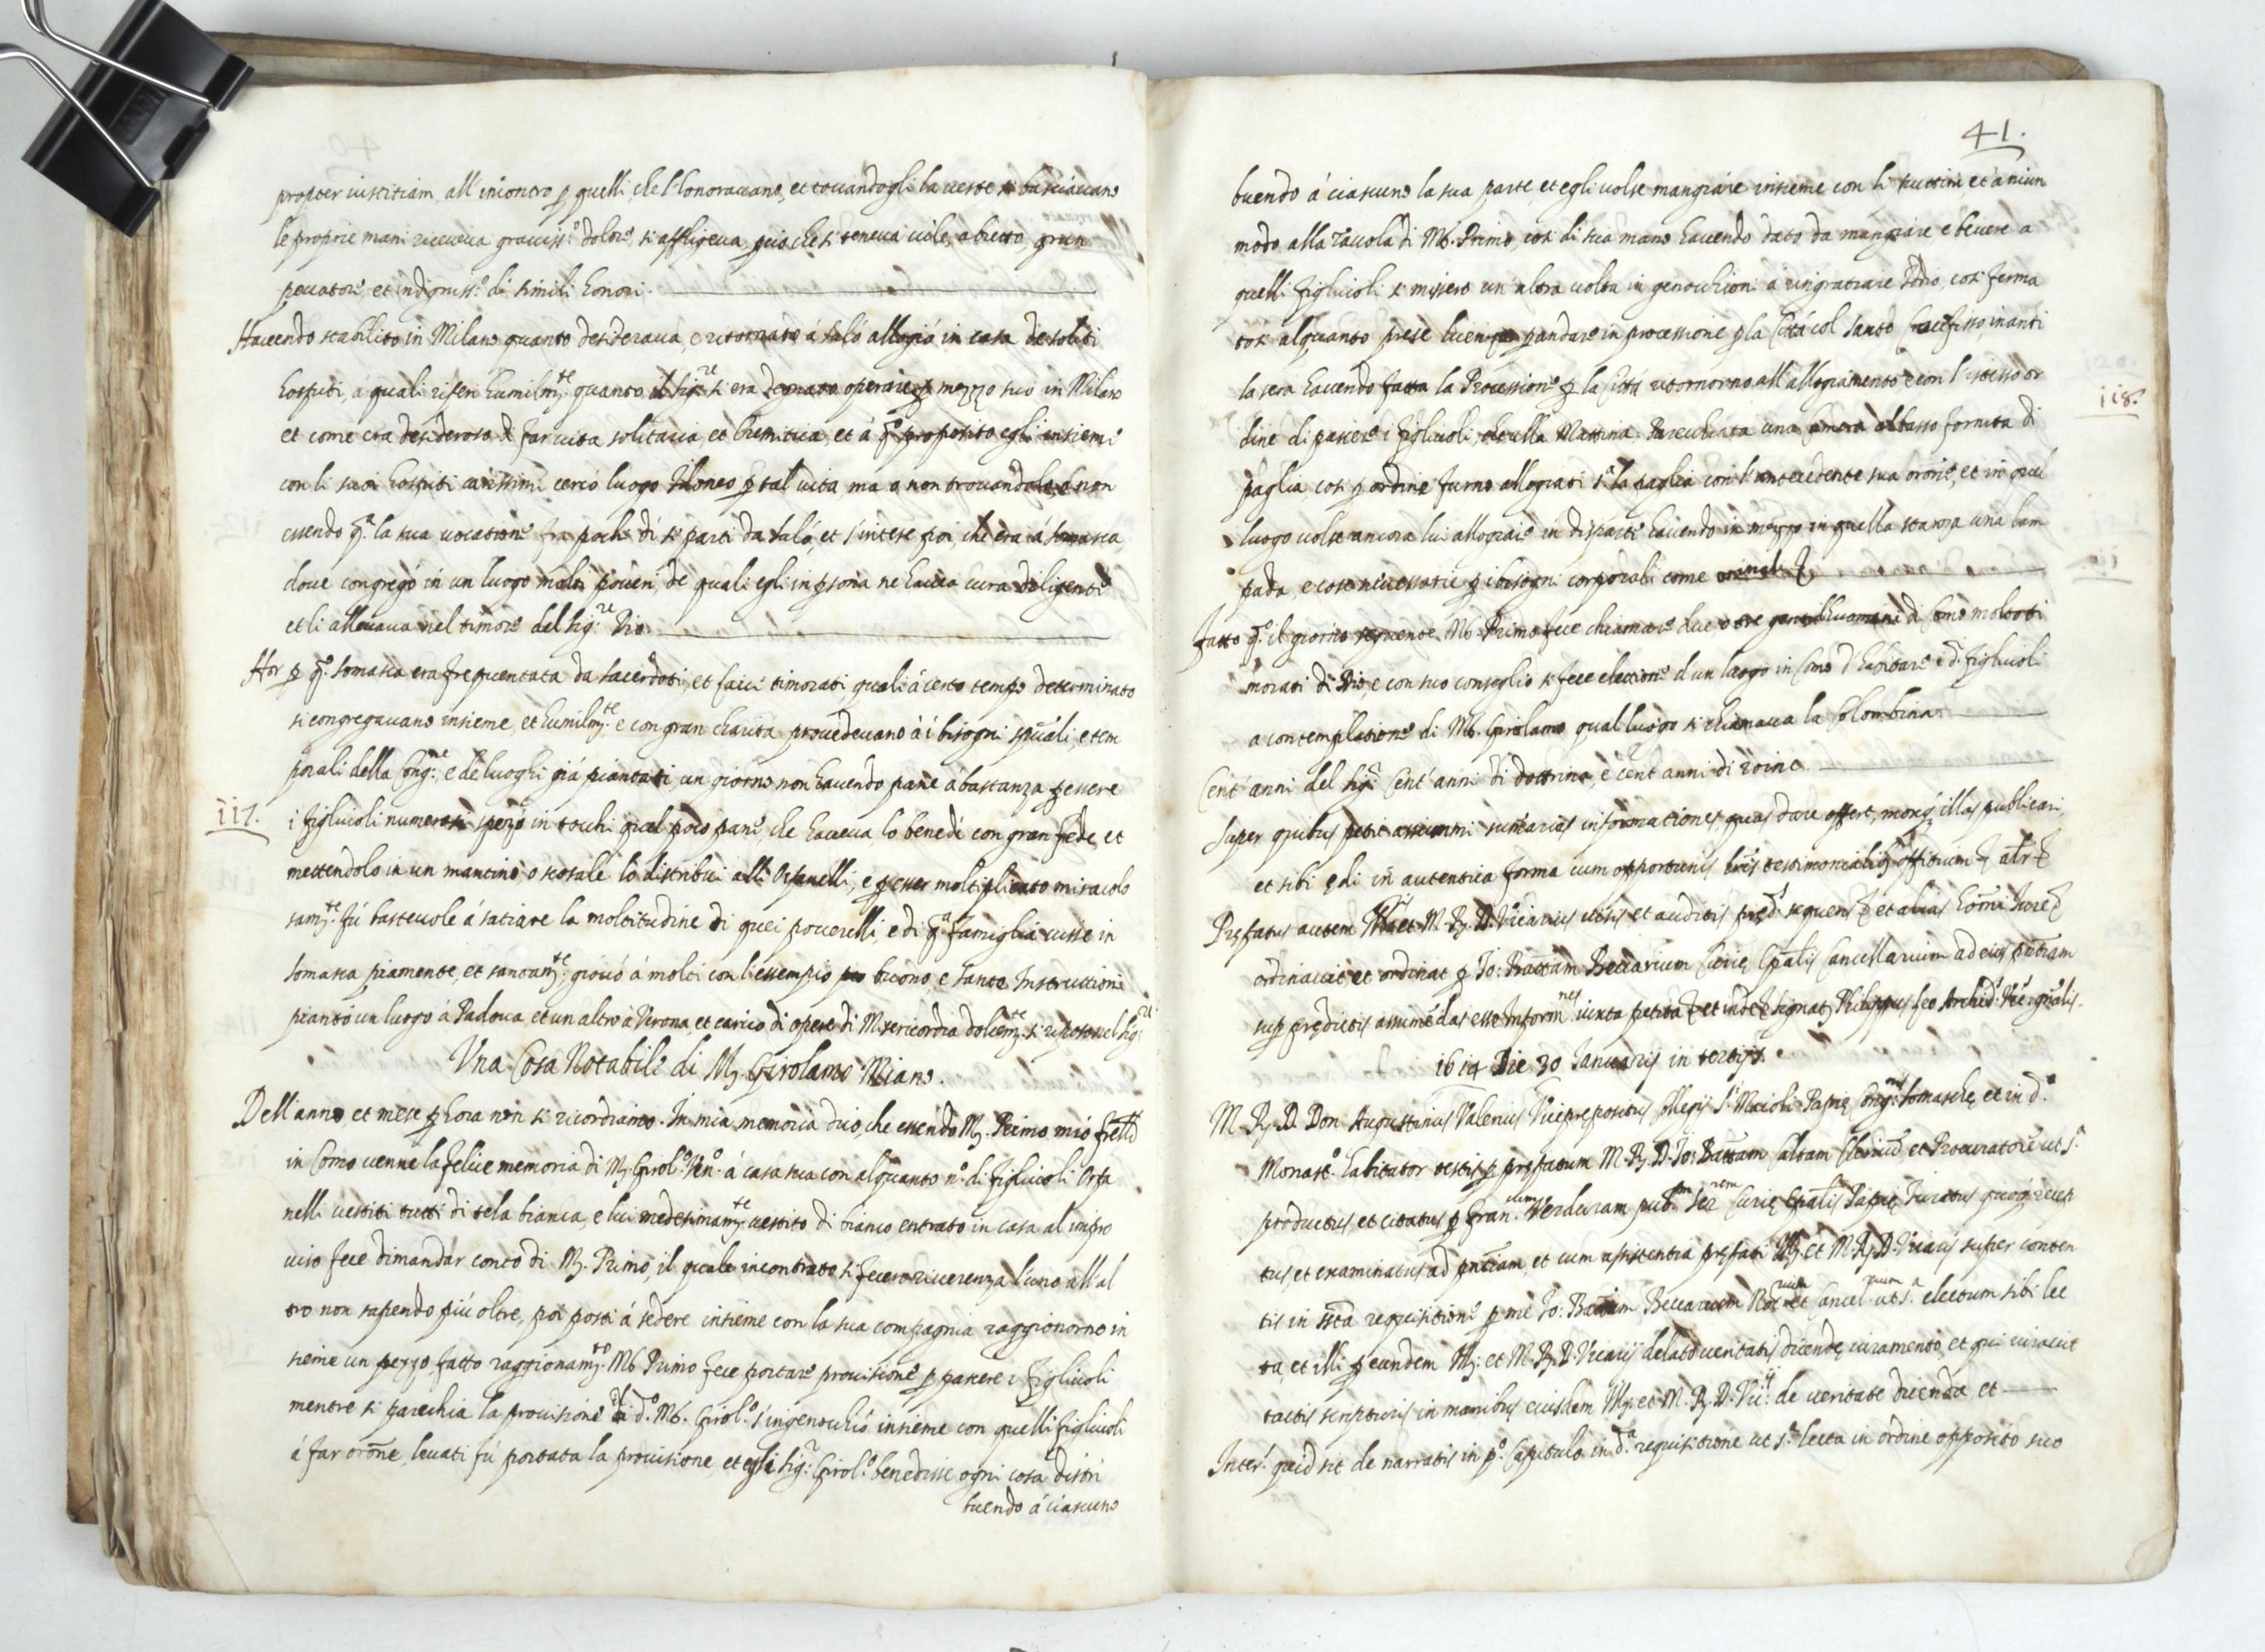 propter iustitiam, all'incontro p quelli, che l'honoravano, et toccandogli la veste si basciavano
le proprie mani riceveva graviss.º dolore, si affligeva, pciò che si teneva vile, abietto, gran
peccatore et indigniss.º di simili honori.
Havendo stabilito in Milano quanto desiderava, e ritornato á Saló allogió in casa de soliti
hospiti, á quali riferi humilm.te quanto il Sig.re si era degnato operare p mezzo suo in Milano
et come era desideroso di far vita solitaria, et heremitica, et á q.º proposito egli insieme
con li suoi hospiti carissimi cercó luogo idoneo p tal vita ma o non trovandolo, ó non
essendo q.a la sua vocatione fra pochi dí si partí da Saló, et s'intese poi, che era á Somasca,
dove congregó in un luogo molti poveri, de quali egli in psona ne haveva cura diligente
et li allevava nel timore del Sig.re Dio.
Hor p q.º Somasca era frequentata da sacerdoti, et laici timorati quali á certo tempo determinato
si congregavano insieme, et humilm.te e con gran charita provedevano á i bisogni spuáli, e tem
porali della Cong.ne, e de luoghi giá piantati un giorno non havendo pane á bastanza p essere
117.
i figlivoli numerosi spezó in tochi quel poco pane, che haveva, lo benedí con gran fede, et
mettendolo in un mantino, o scosale lo distribuí alli Orfanelli, e p esser moltiplicato miracolo
sam.te fú bastevole á satiare la moltitudine di quei poverelli, e di q.a famiglia visse in
Somasca piamente, et santam.te giovó á molti con l'essempio buono, e sante Instruttioni
piantó un luogo á Padova et un altro á Verona et carico di opere di Misericordia dolcem.te si riposó nel Sig.re
Una Cosa Notabile di M. Girolamo Miano.
Dell'anno, et mese p hora non si ricordiamo. In mia memoria dico, che essendo M. Primo mio frello
in Como venne la felice memoria di M. Girol.º Ven.º á casa sua con alquanto n.º di figlivoli Orfa
nelli vestiti tutti di tela bianca, e lui medesimam.te vestito di bianco entrato in casa al impro
viso fece dimandar conto di M. Primo, il quale incontrato si fecero riverenza l'uno all'al
tro non sapendo più oltre, poi posti á sedere insieme con la sua compagnia raggionorno in
sieme un pezzo, fatto raggionam.to Mº. Primo fece portare provisione p pascere i figlivoli
mentre si parechia la provisione il d.º Mº. Girol.º s'ingenochió insieme con quelli figlivoli
á far orõne, levati fú portata la provisione, et egli Sig.r Girol.º benedisse ogni cosa distri
buendo á ciascuno
41.
buendo á ciascuno la sua parte, et egli volse mangiare insieme con li puttini et á niun
modo alla Tavola di Mº. Primo, cosi di sua mano havendo dato da mangiare e bevere a
quelli figlivoli si missero un'altra volta in genochioni á ringratiare Iddio, cosi ferma
tosi alquanto prese licenza p andare in processione p la Cittá col Santo Crucefisso, inanti
la sera havendo fatta la Processione p la Cittá ritornorno all'allogiamento e con l'istesso or
118.
dine di pascere i figlivoli, che alla Mattina. Parechiata una Camera abasso fornita di
paglia cosi p ordine furno allogiati s.a la paglia con l'antecedente sua orõne, et in quel
luogo volse ancora lui allogiare in disparte havendo in mezzo in quella stanza una lam
pada, e cose necessarie p i bisogni corporali come orinali
Fatto q.º il giorno seguente Mº. Primo fece chiamare due o tre gentilhuomini di Como molto ti
morati di Dio, e con suo conseglio si fece elettione d'un luogo in Como d'habitare i d. figlivoli
a contemplatione di Mº. Girolamo qual luogo si chiamava la Colombina.
Cent'anni del Sig.r Cent'anni di dottrina, e cent'anni di roina.
Super quibus petit assummi sumarias informationes, quas dare offert, illas publicari,
et sibi ędi in autentica forma cum opportunis lrís testimonialibus officium
Pręfatus autem et M. R. D. Vicarius visis et auditis pręd.
ordinavit et ordinat p Jo: Battam Beccarium Curię Epalis Cancellarium ad eius
sup prędictis assumédas esse Inform.nes iuxta petita et inde signat. Philippus Leo Archid. Vic. gnális.
1614 Die 30 Januarij in tertijs
M. R. D. Don Augustinus Valerius Viceprępositus Collegij S. Maioli Papię Cong.nis Somaschę et in d.º
Monast.º habitator testis p pręfatum M. R. D. Jo: Battam Saltam et Procuratorē ut s.a
productus, et citatus p Fran.cum Verduram pub. Curię Epalis Papię Juratus
tus, et examinatus ad pntiam, et cum assistentia pręfati et M. R. D. Vicarij super conten
tis in requisitione p me Jo: Battam Beccarium Not.rium et Cancel.rium ut s.a electum sibi lec
ta, et illi p eundem et M. R. D. Vicarij delato veritatis dicendę iuramento, et qui iuravit
tactis scripturis in manibus eiusdem et M. R. D. Vic.ij de veritate dicenda et
Inter.º quid sit de narratis in p.º Capitulo in d.a requisitione ut s.a lecta in ordine opposito suo